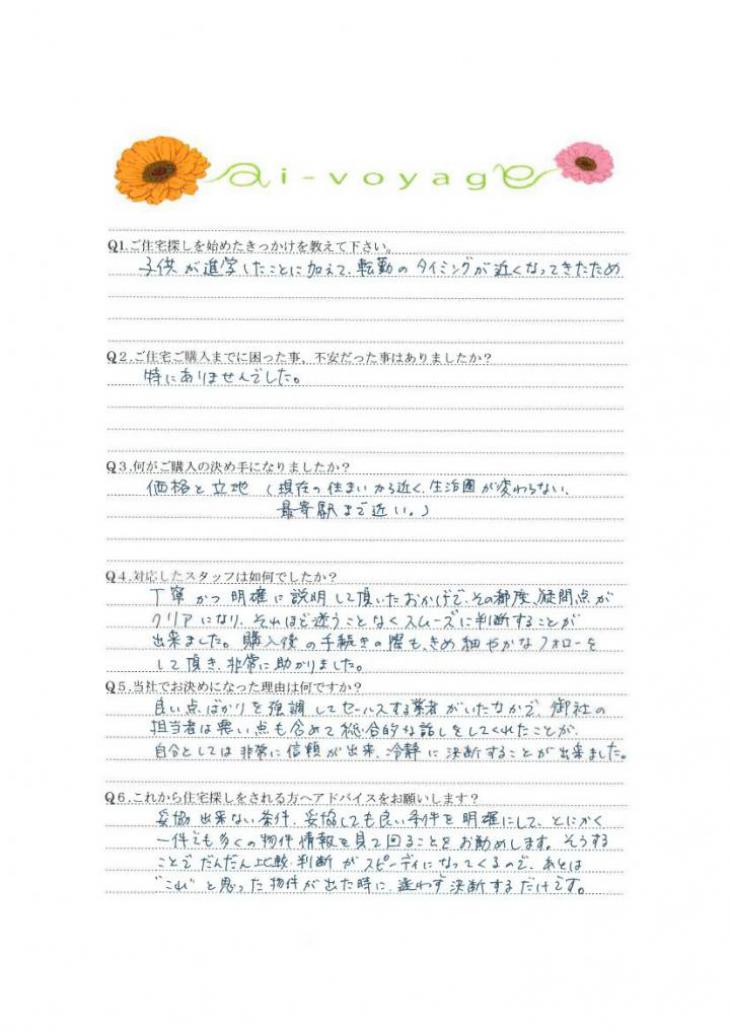 ai-voyage
Q1.ご住宅探しを始めたきっかけを教えて下さい。
子供が進学したことに加えて、転勤のタイミングが近くなってきたため
Q2.ご住宅ご購入までに困った事，不安だった事はありましたか？
特にありませんでした。
Q3.何がご購入の決め手になりましたか？
価格と立地（現在の住まいから近く、生活圏が変わらない、
最寄駅まで近い。）
Q4.対応したスタッフは如何でしたか？
丁寧かつ明確に説明して頂いたおかげで、その都度、疑問点が
クリアになり、それほど迷うことなくスムーズに判断することが
出来ました。購入後の手続きの際も、きめ細やかなフォローを
して頂き、非常に助かりました。
Q5.当社でお決めになった理由は何ですか？
良い点ばかりを強調してセールスする業者がいたなかで、御社の
担当者は悪い点も含めて総合的な話しをしてくれたことが、
自分としては非常に信頼が出来、冷静に決断することが出来ました。
Q6.これから住宅探しをされる方へアドバイスをお願いします？
妥協出来ない条件、妥協しても良い条件を明確にして、とにかく
一件でも多くの物件情報を見て回ることをお勧めします。そうする
ことでだんだん比較・判断がスピーディになってくるので、あとは
"これ"と思った物件が出た時に、迷わず決断するだけです。